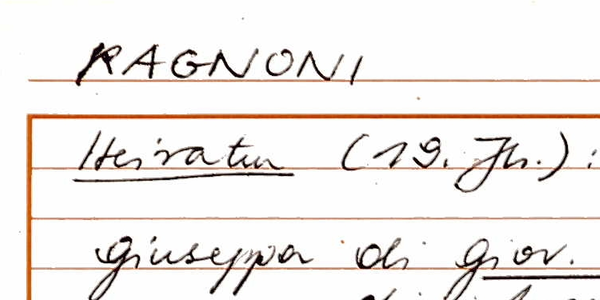 RAGNONI
Heiraten (19. Jh.):
Giuseppa di Giov.